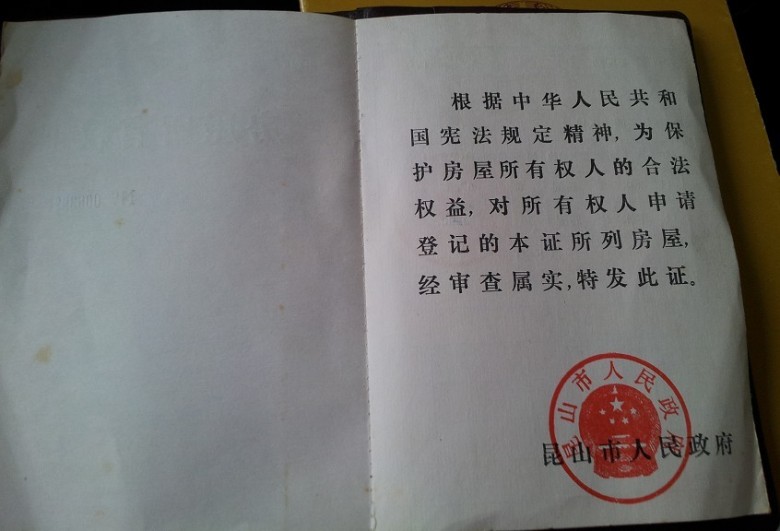 根据中华人民共和
国宪法规定精神，为保
护房屋所有权人的合法
权益，对所有权人申请
登记的本证所列房屋，
经审查属实，特发此证。
昆山市人民政府
昆山市人民政府